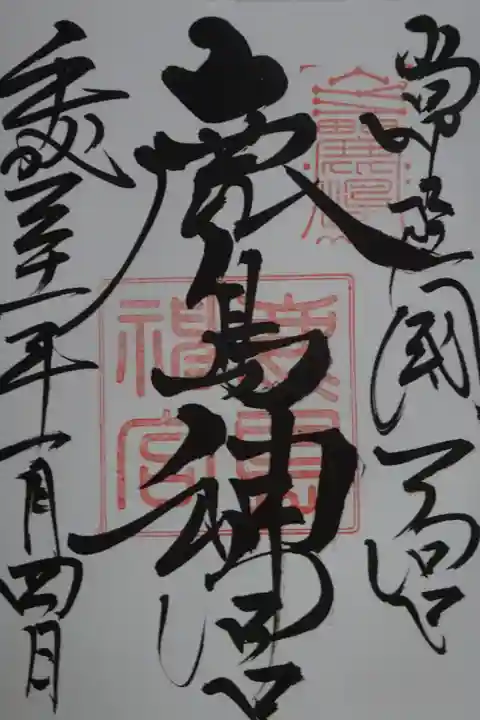 常陸國一之宮
鹿島神宮
鹿島神宮
平成三十一年一月四日